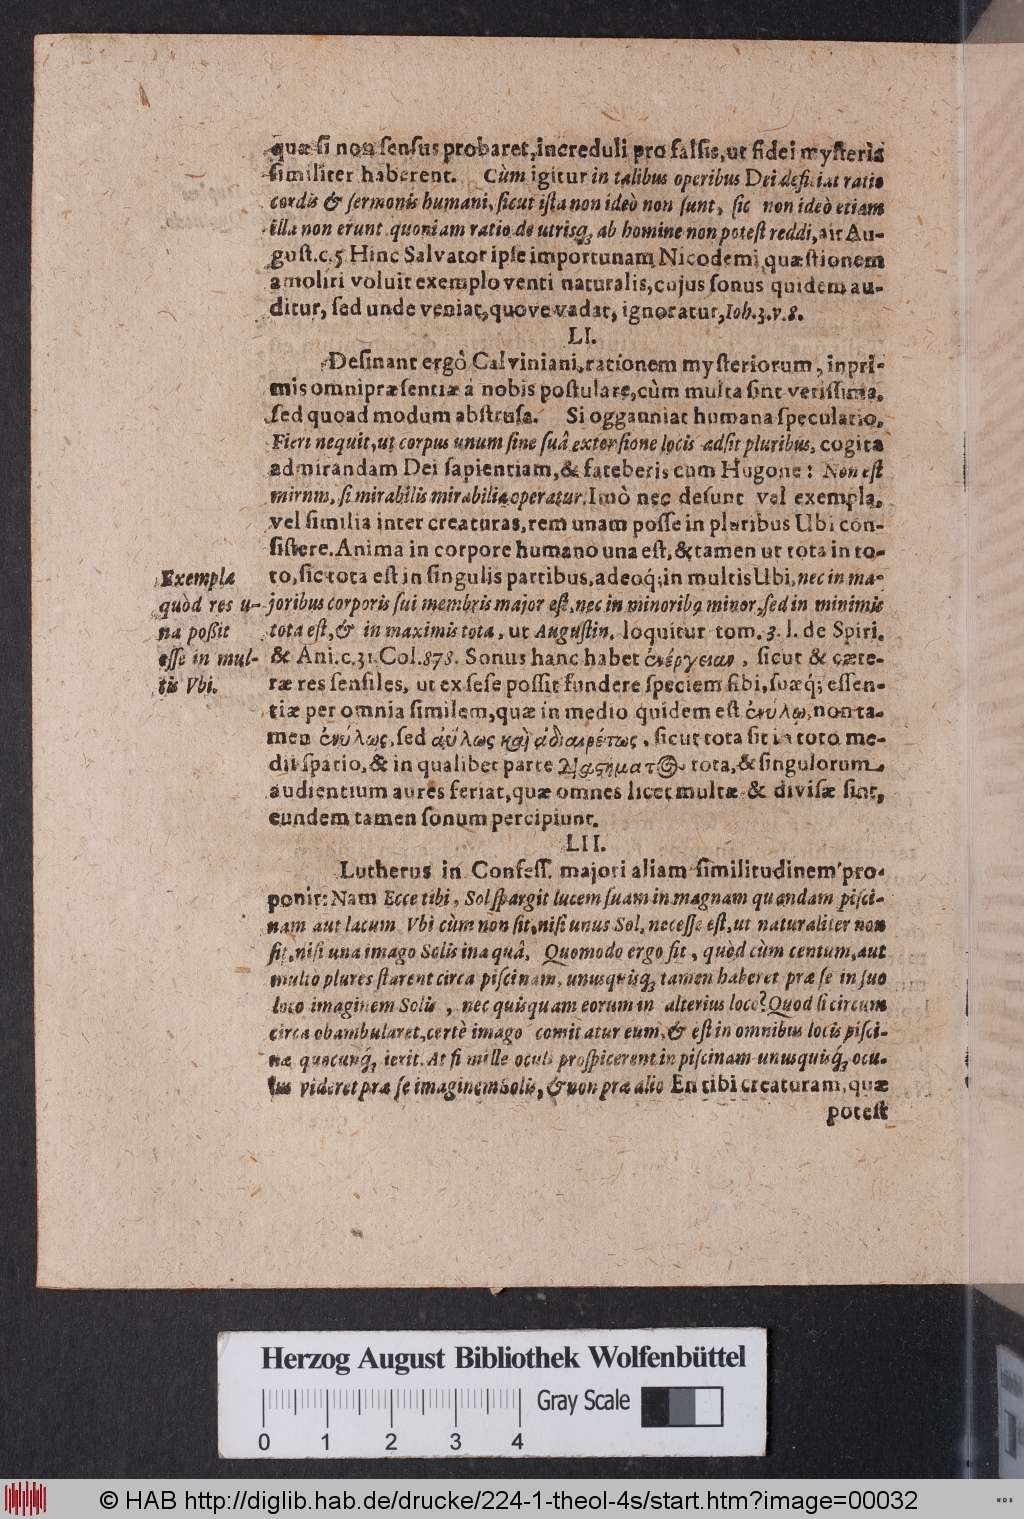 quæ si non sensus probaret, increduli pro falsis, ut fidei mysteria
similiter haberent. Cùm igitur in talibus operibus Dei deficiat ratio
cordis & sermonis humani, sicut ista non ideò non sunt, sic non ideò etiam
illa non erunt quoniam ratio de utrisq; ab homine non potest reddi, ait Au-
gust. c. 5 Hinc Salvator ipse importunam Nicodemi quæstionem
amoliri voluit exemplo venti naturalis, cujus sonus quidem au-
ditur, sed unde veniat, quove vadat, ignoratur, Ioh. 3. v. 8.
LI.
Desinant ergò Calviniani, rationem mysteriorum, inpri-
mis omnipræsentiæ à nobis postulare, cùm multa sint verissima,
sed quoad modum abstrusa. Si oggauniat humana speculatio,
Fieri nequit, ut corpus unum sine suâ extensione locis adsit pluribus, cogita
admirandam Dei sapientiam, & fateberis cum Hugone: Non est
mirum, si mirabilis mirabilia operatur. Imò nec desunt vel exempla,
vel similia inter creaturas, rem unam posse in pluribus Ubi con-
sistere. Anima in corpore humano una est, & tamen ut tota in to-
Exempla
quòd res u-
na poßit
esse in mul-
tis Vbi.
to, sic tota est in singulis partibus, adeoq́; in multis Ubi, nec in ma-
joribus corporis sui membris major est, nec in minoribꝰ minor, sed in minimis
tota est, & in maximis tota, ut Augustin. loquitur tom. 3. l. de Spiri.
& Ani. c. 31. Col. 878. Sonus hanc habet ἐνέργειαν, sicut & cæte-
ræ res sensiles, ut ex sese possit fundere speciem sibi, suæq́; essen-
tiæ per omnia similem, quæ in medio quidem est ἐνύλῳ, non ta-
men ἐνύλως, sed αὐλως καὶ ἀδιαιρέτως, sicut tota sit in toto me-
dii spatio, & in qualibet parte Διαστήματος tota, & singulorum
audientium aures feriat, quæ omnes licet multæ & divisæ sint,
eundem tamen sonum percipiunt.
LII.
Lutherus in Confess. majori aliam similitudinem pro-
ponit: Nam Ecce tibi, Sol spargit lucem suam in magnam quandam pisci-
nam aut lacum Vbi cùm non sit, nisi unus Sol, necesse est, ut naturaliter non
sit, nisi una imago Solis in aquâ, Quomodo ergo fit, quòd cùm centum, aut
multò plures starent circa piscinam, unusquisq; tamen haberet præ se in suo
loco imaginem Solis, nec quisquam eorum in alterius loco? Quod si circum
circa obambularet, certè imago comitatur eum, & est in omnibus locis pisci-
næ quocunq́; ierit. At si mille oculi prospicerent in piscinam unusquisq́; ocu-
lus videret præ se imaginem Solis, & non præ alio En tibi creaturam, quæ
potest
Herzog August Bibliothek Wolfenbüttel
Gray Scale
0 1 2 3 4
© HAB http://diglib.hab.de/drucke/224-1-theol-4s/start.htm?image=00032